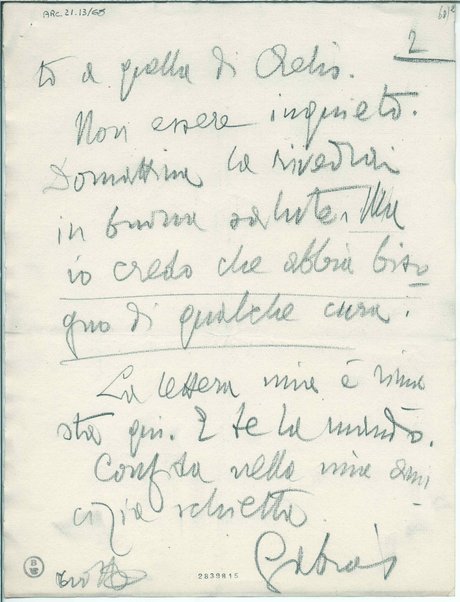 ARC.21.13/65
2
to a quella di
Non essere inquieto.
Domattina la rivedrai
in buona salute. Ma
io credo che abbia biso
gno di qualche cura.
La lettera mia è rima
sta qui. E te la mando.
Confida nella mia ami
cizia schietta
2839815